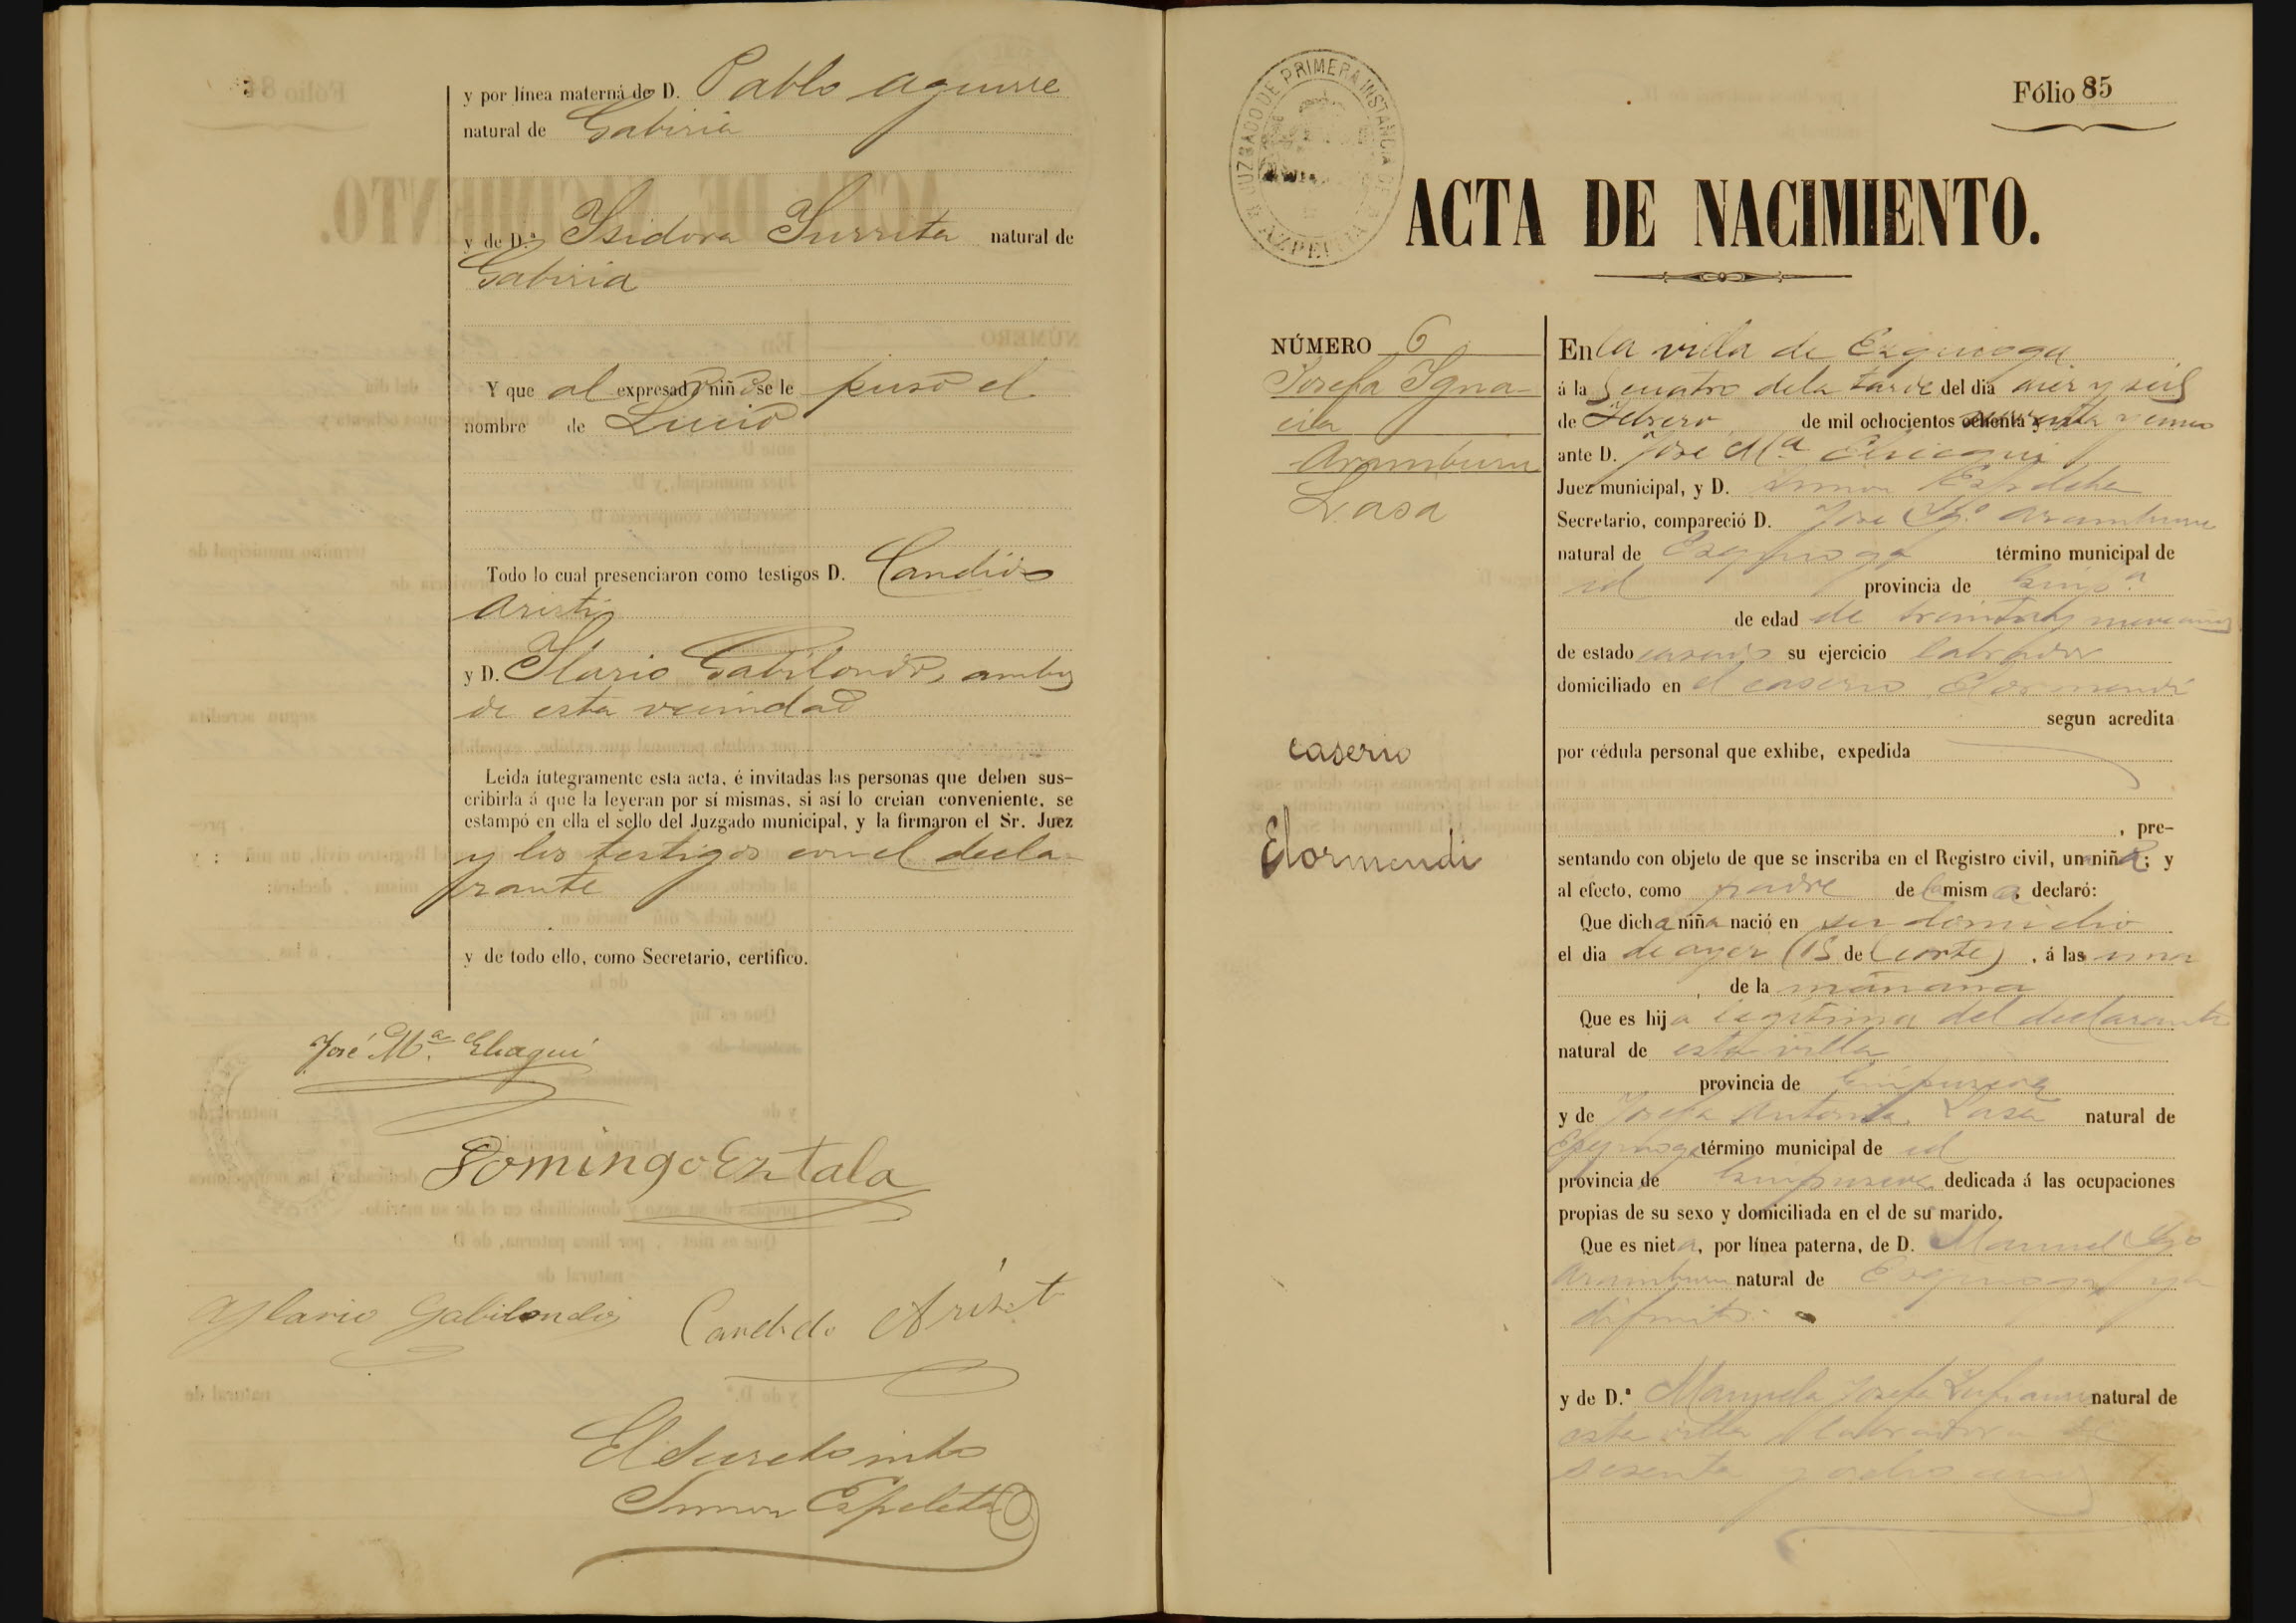 y por línea materna de D. Pablo Aguirre
natural de Gabiria
y de D.ª Ysidora Yurrita natural de
Gabiria
Y que al expresado niño se le puso el
nombre de Lucio
Todo lo cual presenciaron como testigos D. Candido
Aristi
y D. Ylario Gabilondo, ambos
de esta vecindad
Leida íntegramente esta acta, é invitadas las personas que deben sus-
cribirla á que la leyeran por sí mismas, si así lo creian conveniente, se
estampó en ella el sello del Juzgado municipal, y la firmaron el Sr. Juez
y los testigos con el decla-
rante
y de todo ello, como Secretario, certifico.
José M.ª
Domingo Eztala
Ylario Gabilondo Candido Aristi
El Secreto
Simon Espeleta
Fólio 85
JUZGADO DE PRIMERA INSTANCIA DE AZPEITIA
ACTA DE NACIMIENTO.
NÚMERO 6
Josefa Ygna-
cia
Aramburu
Lasa
caserio
Elormendi
En la villa de Ezquioga
á las cuatro de la tarde del dia diez y seis
de Febrero de mil ochocientos ochenta y
ante D. José M.ª
Juez municipal, y D. Simon Espeleta
Secretario, compareció D. José Ygo. Aramburu
natural de Ezquioga término municipal de
id provincia de Guip.ª
de edad de treinta y nueve años
de estado casado su ejercicio labrador
domiciliado en el caserio Elormendi
segun acredita
por cédula personal que exhibe, expedida
, pre-
sentando con objeto de que se inscriba en el Registro civil, una niña; y
al efecto, como padre de la misma, declaró:
Que dicha niña nació en su domicilio
el dia de ayer (15 del corte) , á las una
de la mañana
Que es hija legitima del declarante
natural de esta villa
provincia de Guipuzcoa
y de Josefa Antonia Lasa natural de
Ezquioga término municipal de id
provincia de Guipuzcoa dedicada á las ocupaciones
propias de su sexo y domiciliada en el de su marido.
Que es nieta, por línea paterna, de D. Manuel Ygo
Aramburu natural de Ezquioga ya
difunto
y de D.ª Manuela Josefa natural de
esta villa labradora de
sesenta y ocho años